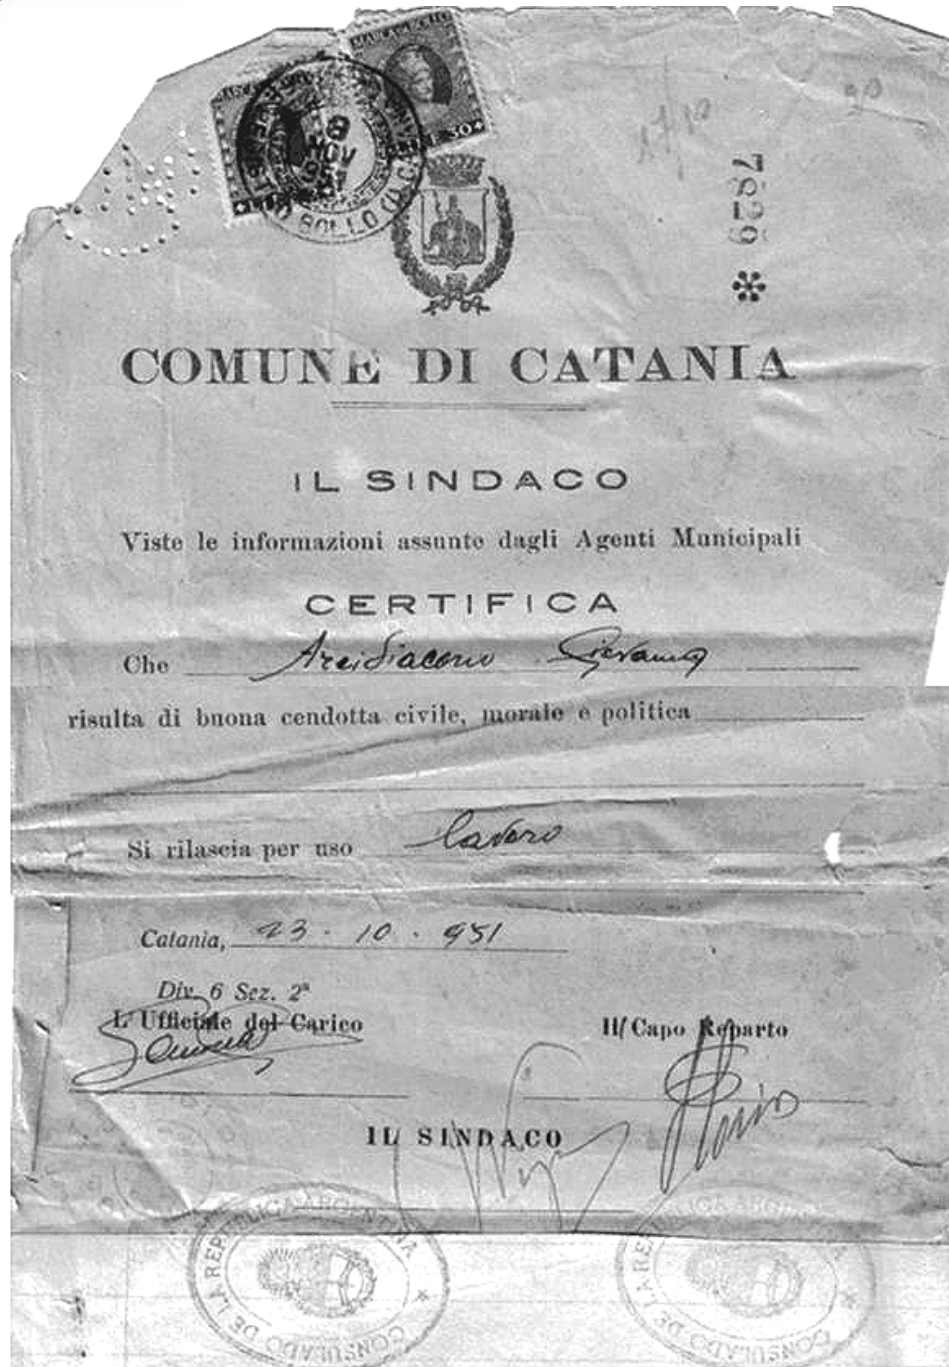 MARCA DA BOLLO
L. 30
8 NOV
BOLLO
17/10
90
7829 *
COMUNE DI CATANIA
IL SINDACO
Viste le informazioni assunte dagli Agenti Municipali
CERTIFICA
Che Arcidiacono Giovanni
risulta di buona cendotta civile, morale e politica
Si rilascia per uso lavoro
Catania, 23 · 10 · 951
Div. 6 Sez. 2ª
L'Ufficiale del Carico Il Capo Reparto
IL SINDACO
CONSULADO DE LA REPUBLICA ARGENTINA *
CONSULADO DE LA REPUBLICA ARGENTINA *